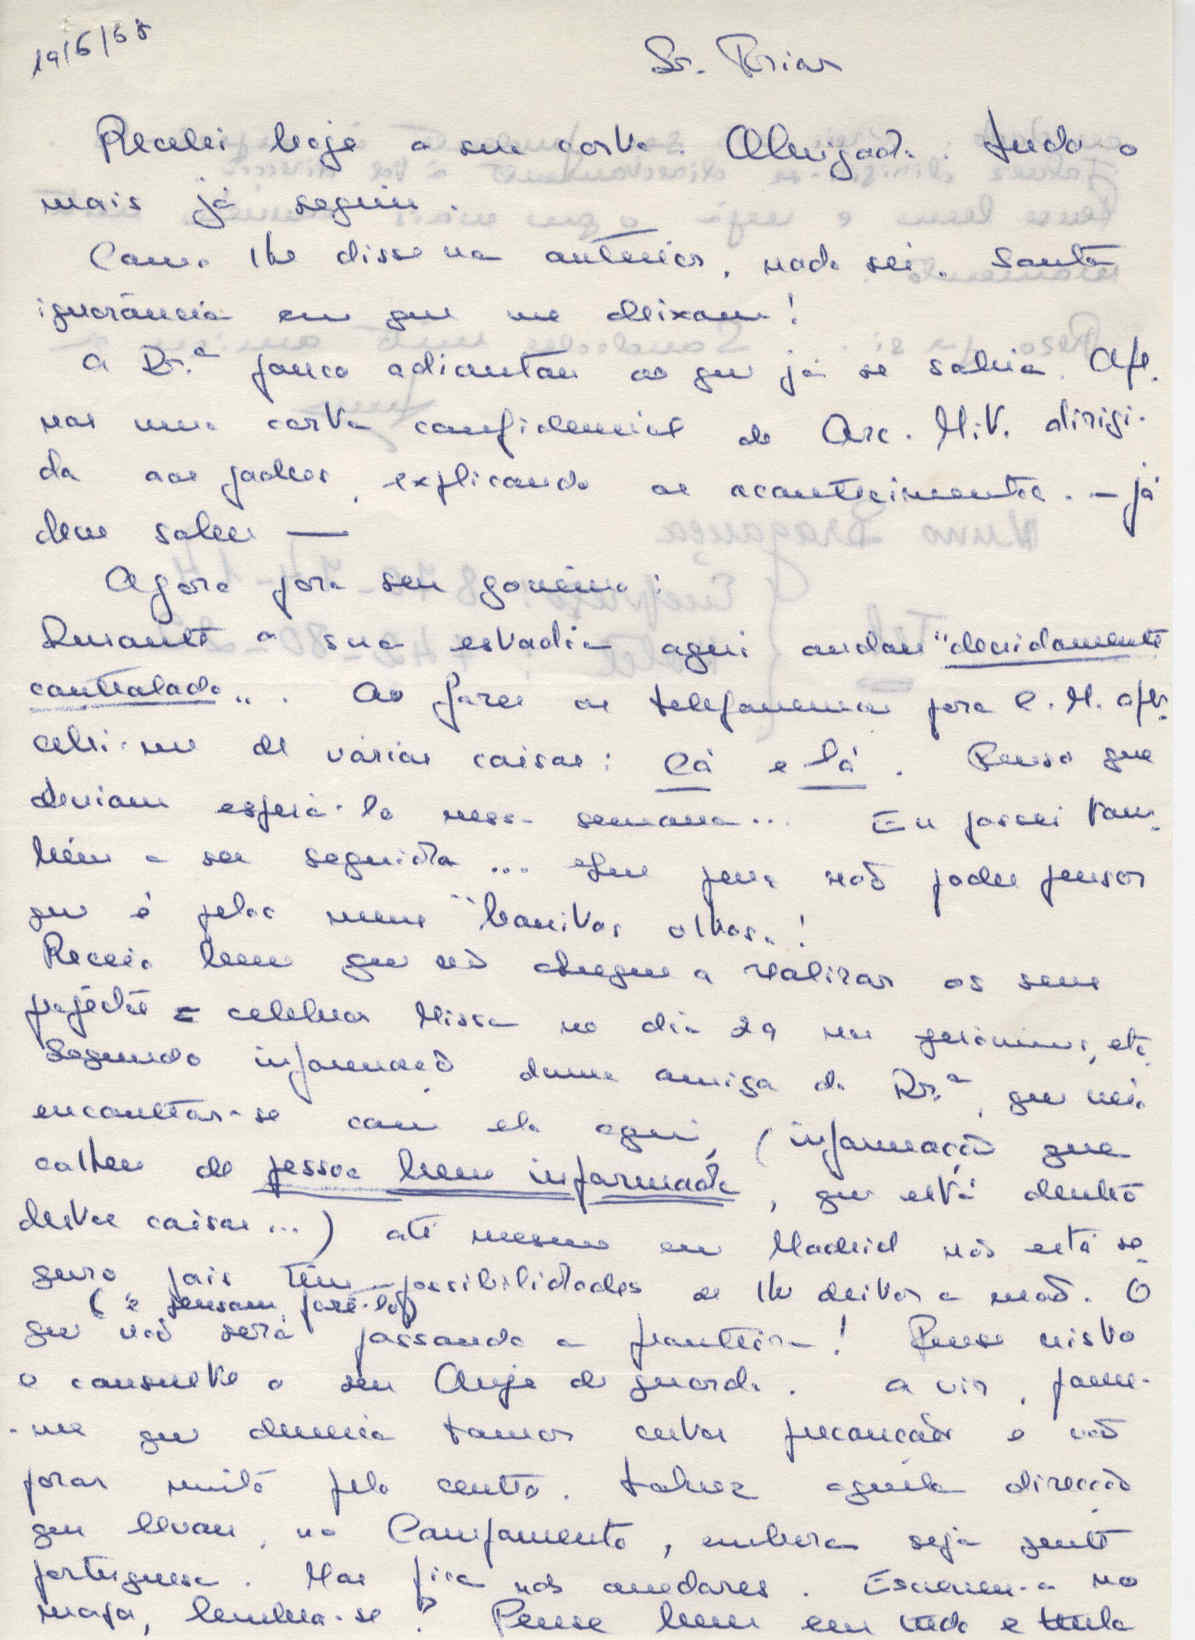 19/6/68
Sr. Prior
Recebi hoje a sua carta. Obrigada. Tudo o
mais já seguiu.
Como lhe disse na anterior, nada sei. Santa
ignorância em que me deixam!
A Dr.ª pouco adiantou ao que já se sabia. Ape-
nas uma carta confidencial do Arc. M.V. dirigi-
da aos padres, explicando os acontecimentos. — já
deve saber —
Agora para seu governo:
Durante a sua estadia aqui andou "devidamente
controlado". Ao fazer os telefonemas para L. M. aper-
cebi-me de várias coisas: Cá e lá. Penso que
deviam esperá-lo nessa semana... Eu passei tam-
bém a ser seguida... Que pena não poder pensar
que é pelos meus "bonitos olhos"!
Receio bem que não chegue a realizar os seus
projectos = celebrar Missa no dia 29 nos Jerónimos, etc.
Segundo informação duma amiga da Dr.ª, que veio
encontrar-se com ela aqui, (informação que
colheu de pessoa bem informada, que está dentro
destas coisas...) até mesmo em Madrid não está se-
guro pois têm possibilidades de lhe deitar a mão. O
(e pensam fazê-lo)
que não será passando a fronteira! Pense nisto
e consulte o seu Anjo da guarda. A vir, parece-
-me que deveria tomar certas precauções e não
parar muito pelo centro. Talvez aquela direcção
que levou, no Campamento, embora seja gente
portuguesa. Mas fica nos arredores. Escreveu-a no
mapa, lembra-se? Pense bem em tudo e